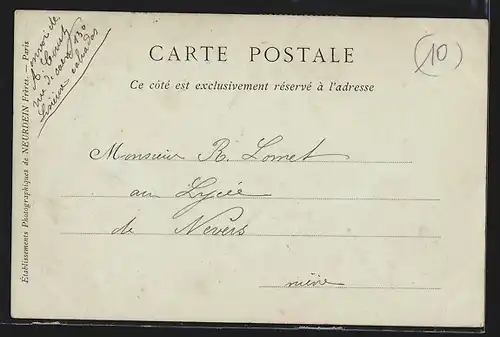 envoi de
rue de caen 130
Lisieux calvados
CARTE POSTALE
(10)
Ce côté est exclusivement réservé à l'adresse
Monsieur R. Lomet
au Lycée
de Nevers
nièvre
Établissements Photographiques de NEURDEIN Frères. — Paris